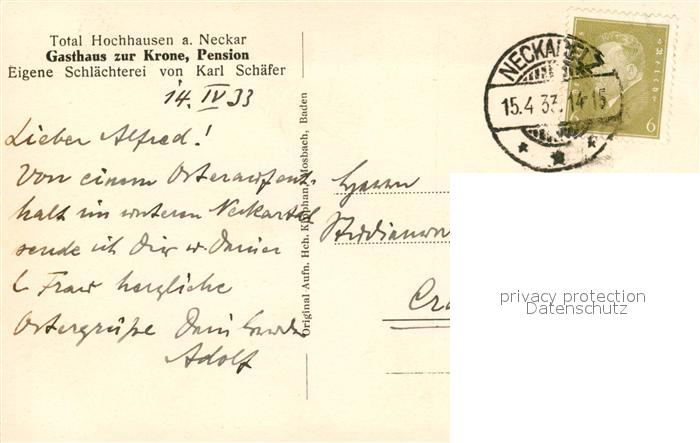 Total Hochhausen a. Neckar
Gasthaus zur Krone, Pension
Eigene Schlächterei von Karl Schäfer
14. IV 33
Lieber Alfred!
Von einem Osteraufent-
halt im unteren Neckartal
sende ich Dir u. Deiner
l. Frau herzliche
Ostergrüße Dein
Adolf
Original Aufn. Hch. Kopphan, Mosbach, Baden
NECKARELZ
15.4.33.14-15
6 6
Herrn
privacy protection
Datenschutz